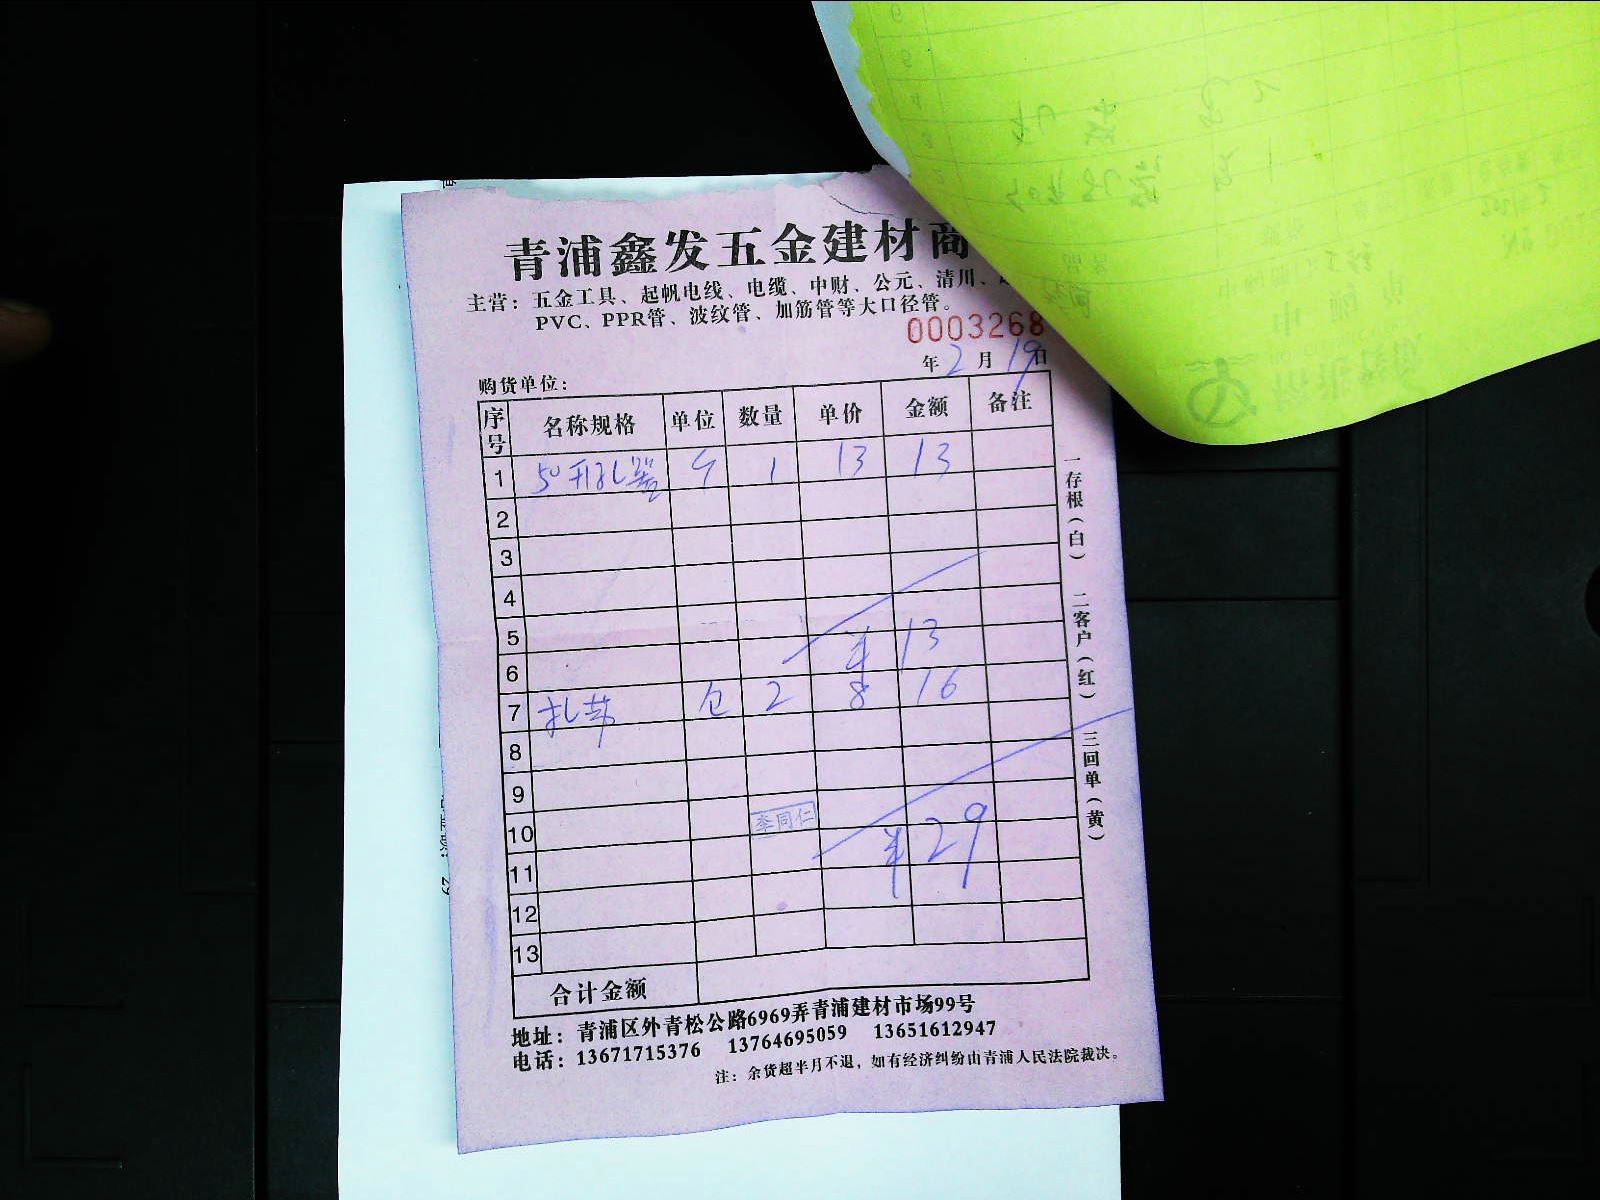 青浦鑫发五金建材商
主营：五金工具、起帆电线、电缆、中财、公元、清川、
PVC、PPR管、波纹管、加筋管等大口径管。
0003268
年2月19日
购货单位：
序号 名称规格 单位 数量 单价 金额 备注
1 50开孔器 个 1 13 13
2
3
4
5
6 ¥13
7 扎带 包 2 8 16
8
9
10 李同仁
11 ¥29
12
13
合计金额
一存根（白） 二客户（红） 三回单（黄）
地址：青浦区外青松公路6969弄青浦建材市场99号
电话：13671715376 13764695059 13651612947
注：余货超半月不退，如有经济纠纷由青浦人民法院裁决。